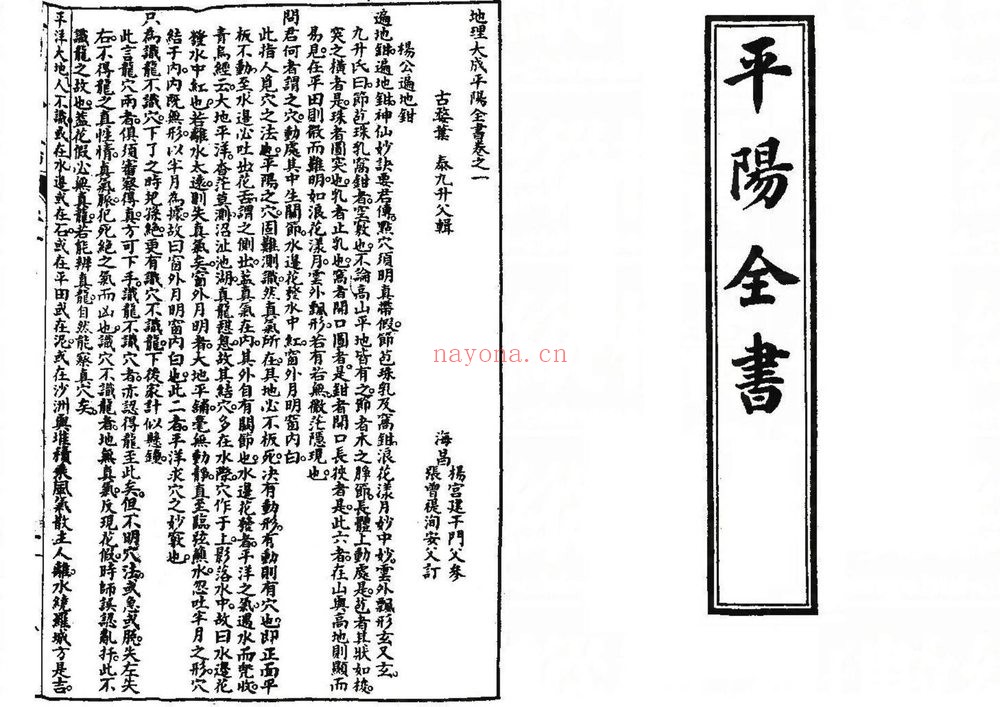 平陽全書
地理大成平陽全書卷之一
古婺葉 泰九升父輯
海昌
楊宮建千門父參
張曾禔洵安父訂
楊公遍地鉗
遍地鉗遍地鉗神仙妙訣要君傳點穴須明真帶假節苞珠乳及窩鉗浪花漾月妙中妙雲外飄形玄又玄
九升氏曰節苞珠乳窩鉗者空竅也不論高山平地皆有之節者木之腫節長體上動處是苞者其狀如梭
突之橫者是珠者圓突也乳者止乳也窩者開口圓者是鉗者開口長挾者是此六者在山與高地則顯而
易見在平田則散而難明如浪花漾月雲外飄形若有若無微茫隱現也
問君何者謂之穴動處其中生關節水邊花發水中紅窗外月明窗內白
此指人覓穴之法也平陽之穴固難測識然真氣所在其地必不板死決有動形有動則有穴也即正面平
板不動至水邊必吐出花舌謂之側出蓋真氣在內其外自有關節也水邊花發者平洋之氣遇水而兜收
青烏經云大地平洋杳茫莫測沼沚池湖真龍憩息故其結穴多在水際穴作于上影落水中故曰水邊花
發水中紅也若離水太遠則失真氣矣窗外月明者大地平鋪毫無動靜直至臨弦蘸水忽吐半月之形穴
結于內內既無形以半月為據故曰窗外月明窗內白也此二者平洋求穴之妙竅也
只為識龍不識穴下了之時兒孫絕更有識穴不識龍下後家計似懸鐘
此言龍穴兩者俱須審察得真方可下手識龍不識穴者亦認得龍至此矣但不明穴法或急或脫失左失
右不得龍之真性情真氣脉犯死絕之氣而凶也識穴不識龍者地無真氣反現花假時師誤認亂扦此不
識龍之故也蓋花假必無真龍若能辨真龍自然能察真穴矣
平洋大地人不識或在水邊或在石或在平田或在泥或在沙洲與堆積乘風氣散主人離水繞羅城方是吉
nayona.cn